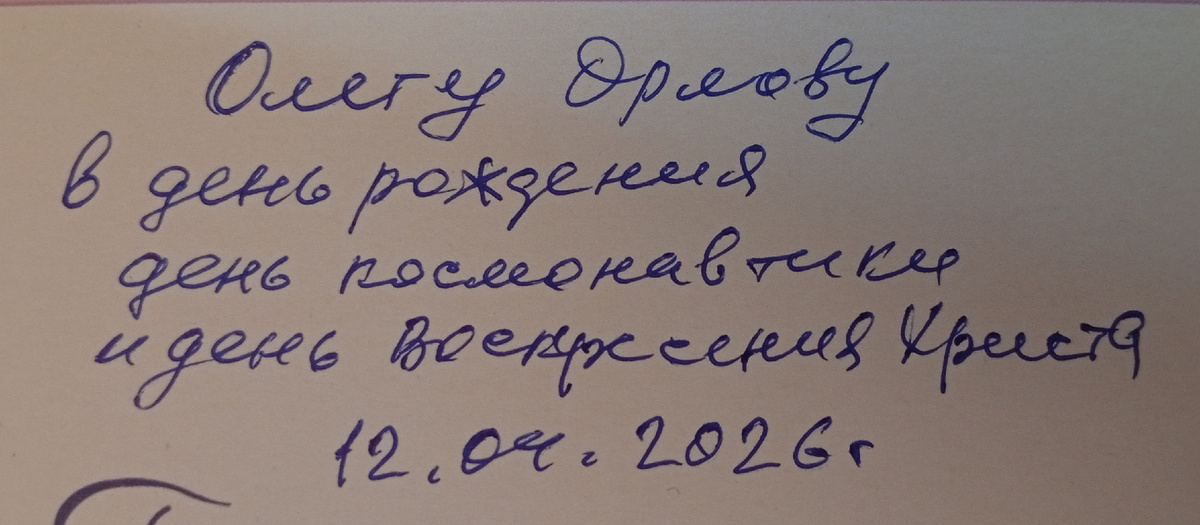 Олегу Орлову
в день рождения
день космонавтики
и день Воскресения Христа
12.04.2026 г